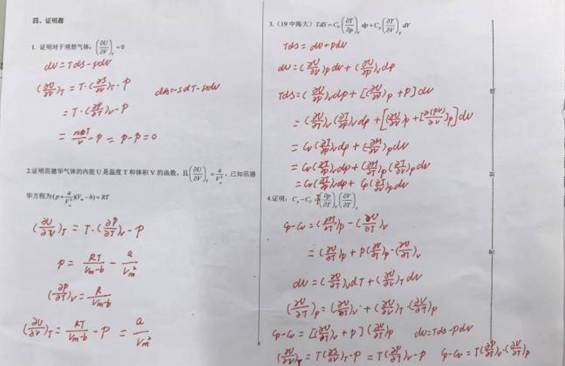 四、证明题
1. 证明对于理想气体，(∂U/∂V)_T = 0
dU = TdS - pdV
(∂U/∂V)_T = T·(∂S/∂V)_T - P
dA = -SdT - pdV
= T·(∂P/∂T)_V - P
= nRT/V - P = P - P = 0
2.证明范德华气体的内能 U 是温度 T 和体积 V 的函数，且(∂U/∂V)_T = a/V²，已知范德
华方程为(p + a/V²)(V_m - b) = RT
(∂U/∂V)_T = T·(∂P/∂T)_V - P
P = RT/(V_m-b) - a/V_m²
(∂P/∂T)_V = R/(V_m-b)
(∂U/∂V)_T = RT/(V_m-b) - P = a/V_m²
3.（19 中海大）TdS = C_V(∂T/∂p)_V dp + C_p(∂T/∂V)_p dV
Tds = dU + pdV
dU = (∂U/∂V)_p dV + (∂U/∂P)_V dp
Tds = (∂U/∂P)_V dp + [(∂U/∂V)_p + P] dV
= (∂U/∂T)_V (∂T/∂P)_V dp + [(∂U/∂V)_p + (∂(PV)/∂V)_p] dV
= C_V(∂T/∂P)_V dp + (∂H/∂V)_p dV
= C_V(∂T/∂P)_V dp + (∂H/∂T)_p (∂T/∂V)_p dV
= C_V(∂T/∂P)_V dp + C_p(∂T/∂V)_p dV
4.证明：C_p - C_V = T(∂p/∂T)_V (∂V/∂T)_p
C_p - C_V = (∂H/∂T)_p - (∂U/∂T)_V
= (∂U/∂T)_p + P(∂V/∂T)_p - (∂U/∂T)_V
dU = (∂U/∂T)_V dT + (∂U/∂V)_T dV
(∂U/∂T)_p = (∂U/∂T)_V + (∂U/∂V)_T·(∂V/∂T)_p
C_p - C_V = [(∂U/∂V)_T + P] (∂V/∂T)_p
dU = TdS - pdV
(∂U/∂V)_T = T(∂S/∂V)_T - P = T(∂P/∂T)_V - P
C_p - C_V = T(∂P/∂T)_V·(∂V/∂T)_p